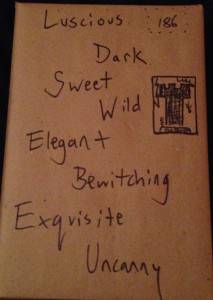 Luscious 186
Dark
Sweet
Wild
Elegant
Bewitching
Exquisite
Uncanny